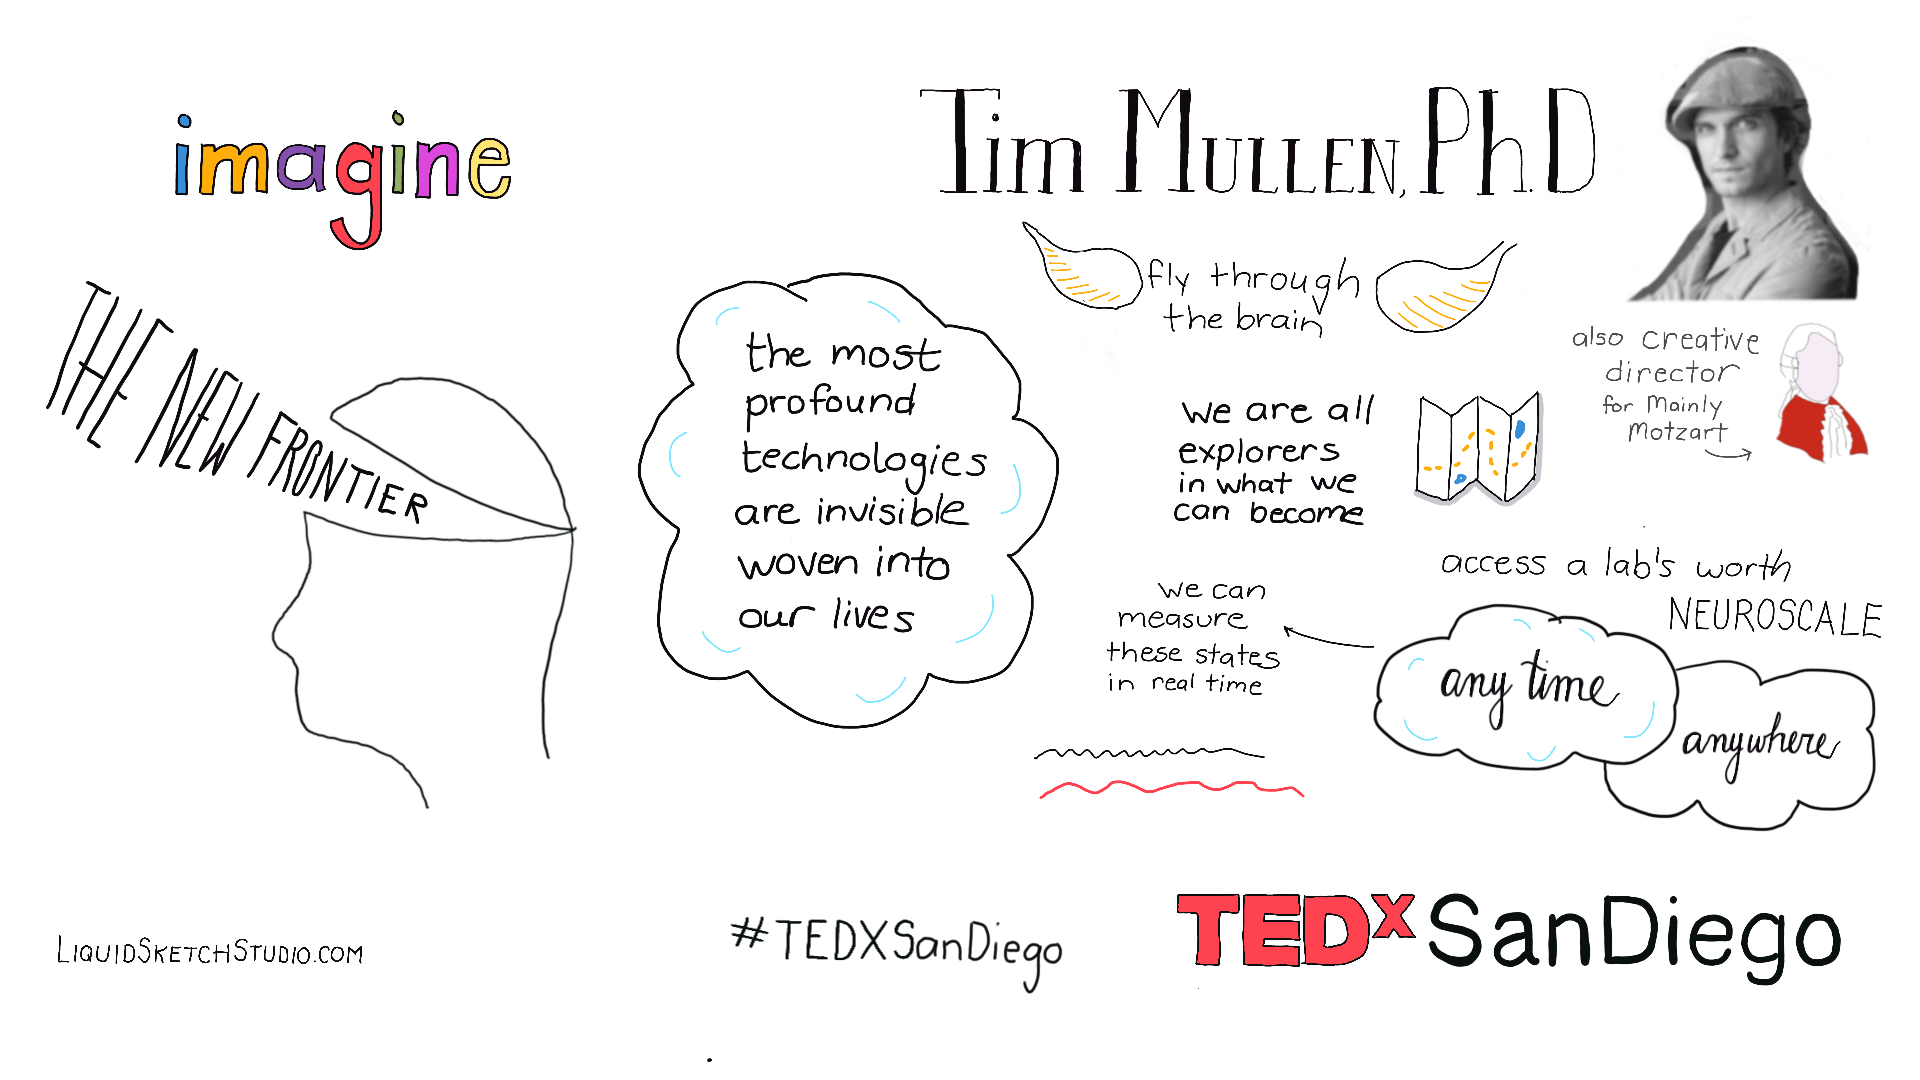 imagine
THE NEW FRONTIER
the most
profound
technologies
are invisible
woven into
our lives
Tim Mullen, Ph.D
fly through
the brain
also creative
director
for Mainly
Motzart
we are all
explorers
in what we
can become
access a lab's worth
NEUROSCALE
any time
anywhere
we can
measure
these states
in real time
LiquidSketchStudio.com
#TEDXSanDiego
TEDxSanDiego